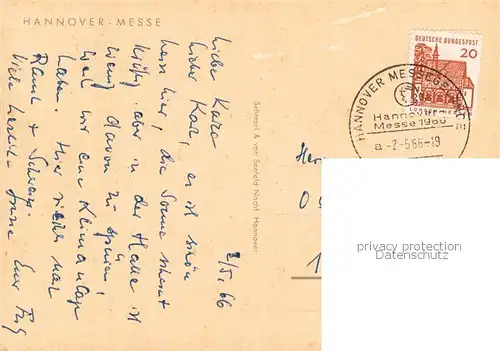 HANNOVER - MESSE
2/5. 66
Liebe Käte
lieber Karl, es ist schön
heiss hier, die Sonne scheint
kräftig aber in der Halle ist
wenig davon zu spüren!
weil wir eine Klimaanlage
haben. Hier riecht's nach
Rauch & Schweiss.
Viele herzliche Grüsse Euer
Schmorl & von Seefeld Nachf. Hannover
DEUTSCHE BUNDESPOST
20
HANNOVER MESSEGELÄNDE
Hannover
Messe 1966
a -2-5.66-19
Her
privacy protection
AnsichtsKartenMarkt